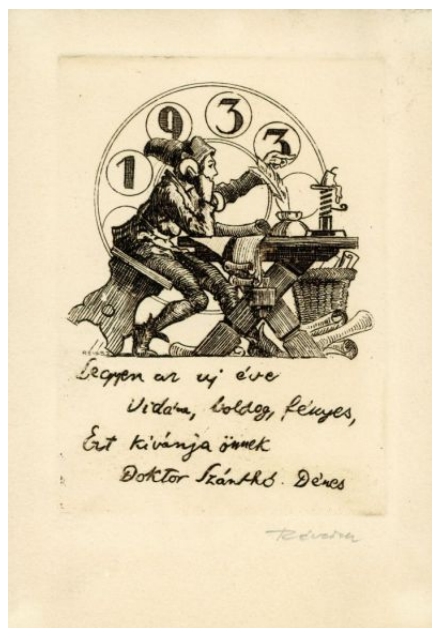 1933
Legyen az uj éve
Vidám, boldog, fényes,
Ezt kivánja önnek
Doktor Szánthó Dénes